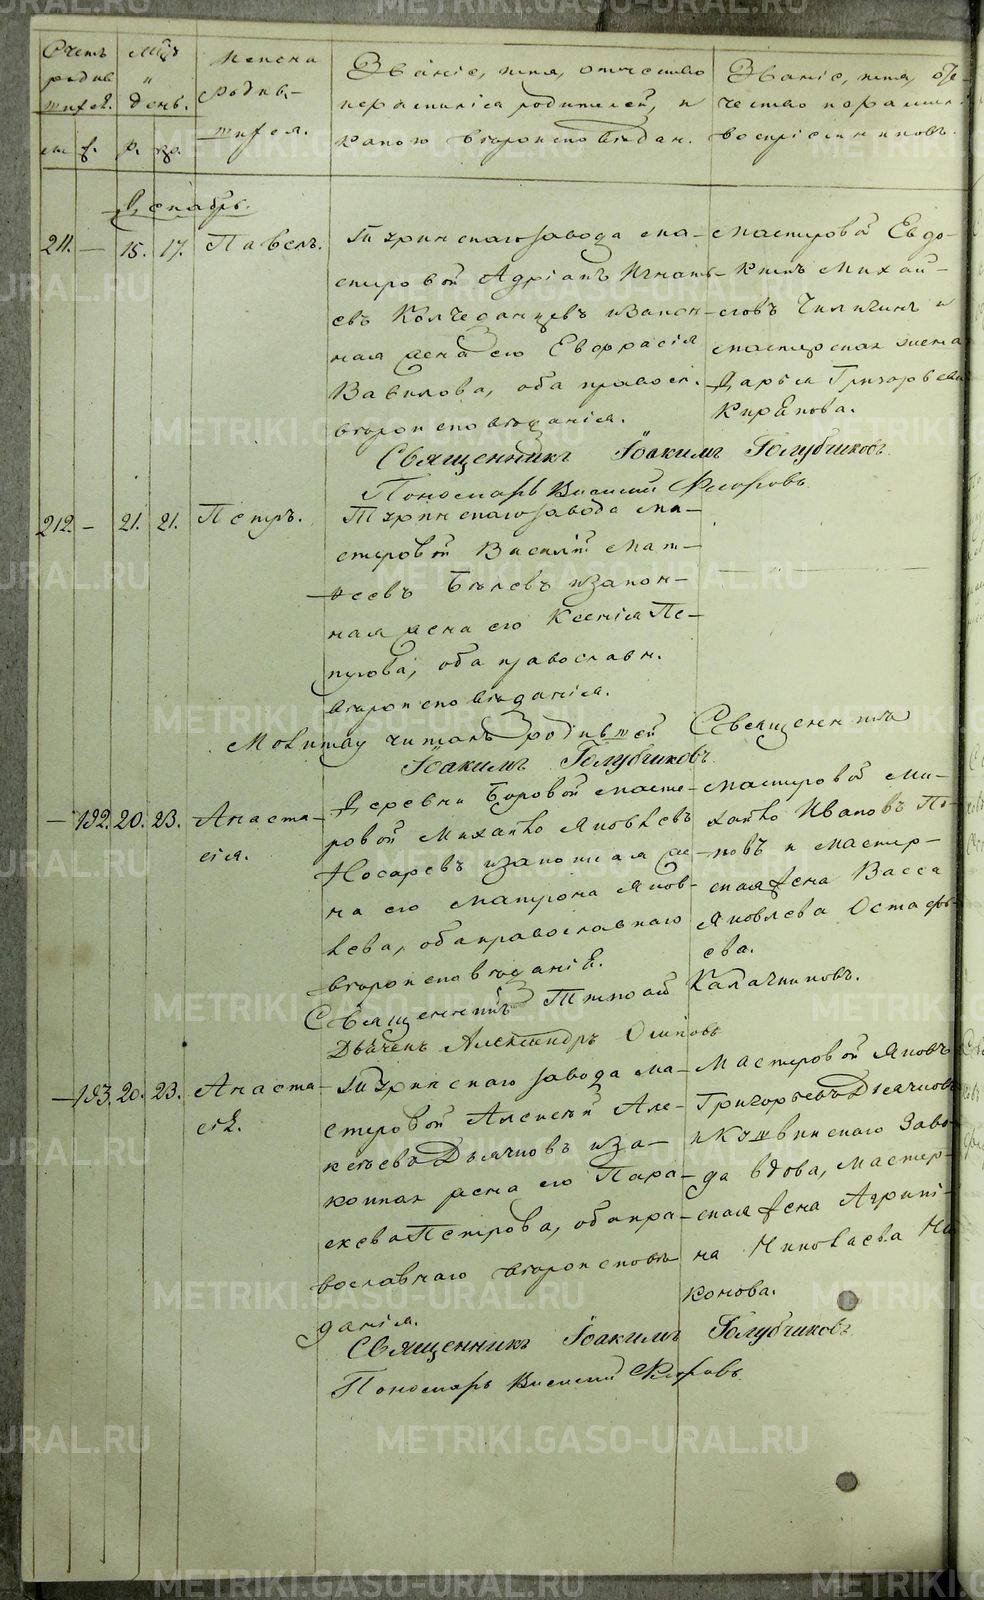 Счетъ родив- шихся. Мѣся. и день. Имена родив- шихся.
Званіе, имя, отчество и
фамилія родителей, и
какого вѣроисповѣдан.
Званіе, имя, оте-
чество и фамилія
воспріемниковъ.
м. ж. р. кр.
Декабрь.
211. — 15. 17. Павелъ.
Туринскаго завода ма-
стеровой Адріанъ Игнать-
евъ Колчеданцевъ и закон-
ная жена его Евфрасія
Вавилова, оба правосл.
вѣроисповѣданія.
мастеровой Евдо-
кимъ Михай-
ловъ Чиличинъ и
мастерская жена
Дарья Григорьева
Кирпова.
Священникъ Іоакимъ Голубчиковъ
Пономарь Василій Флоровъ
212. — 21. 21. Петръ.
Туринскаго завода ма-
стеровой Василій Мат-
ѳеевъ Бѣлевъ и закон-
ная жена его Ксенія Пе-
трова, оба православн.
вѣроисповѣданія.
Молитву читалъ родившей Священникъ
Іоакимъ Голубчиковъ
— 192. 20. 23. Анаста-
сія.
Деревни Боровой масте-
ровой Михайло Яковлевъ
Носаревъ и законная же-
на его Матрона Яков-
лева, оба православнаго
вѣроисповѣданія.
мастеровой Ми-
хайло Ивановъ По-
повъ и мастер-
ская жена Васса
Яковлева Остафь-
ева.
Священникъ Тимоѳей Калачниковъ.
Дьяченъ Александръ Осиповъ
— 193. 20. 23. Анаста
сія.
Туринскаго завода ма-
стеровой Алексѣй Але-
ксѣевъ Дьячковъ и за-
конная жена его Пара-
скева Петрова, оба пра-
вославнаго вѣроисповѣ-
данія.
Мастеровой Яковъ
Григорьевъ Дьячковъ
и Кушвинскаго заво-
да вдова, мастер-
ская жена Агрипи-
на Николаева Ни
конова.
Священникъ Іоакимъ Голубчиковъ
Пономарь Василій Флоровъ
METRIKI.GASO-URAL.RU